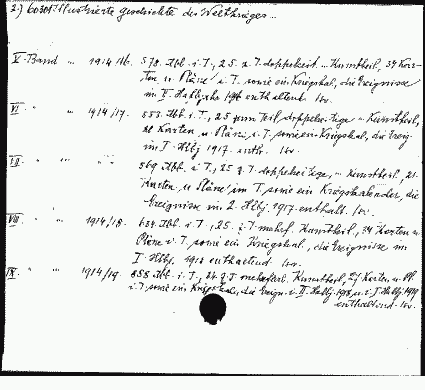 2.) 60301 Illustrierte Geschichte des Weltkrieges...
V. Band " 1914/16. 578 Abb. i. T., 25 z. T. doppelseit. " Kunstbeil., 34 Kar-
ten u. Pläne i. T. sowie ein Kriegskal., die Ereignisse
im II. Halbjahr 1916 enthaltend. Hlw.
VI. " " 1914/17. 553 Abb. i. T., 25 zum Teil doppels. " Kunstbeil.,
Karten u. Pläne i. T. sowie ein Kriegskal., die Ereig-
im I. Hlbj. 1917 enth. Hlw.
VII. " " " 569 Abb. i. T., 25 z. T. doppelseitige " Kunstbeil., 21
Karten u. Pläne im T. sowie ein Kriegskalender, die
Ereignisse im 2. Hlbj. 1917 enthalt. Hlw.
VIII. " " 1914/18. 634 Abb. i. T., 25 z. T. mehrf. Kunstbeil., 34 Karten u.
Pläne i. T. sowie ein Kriegskal., die Ereignisse im
I. Hlbj. 1918 enthaltend Hlw.
IX. " " 1914/19. 658 Abb. i. T., 24 z. T. mehrfarb. Kunstbeil., Karten u. Pl.
i. T. sowie ein Kriegskal., die Ereign. i. II. Halbj. 1918 u. i. I. Halbj. 1919
enthaltend. Hlw.